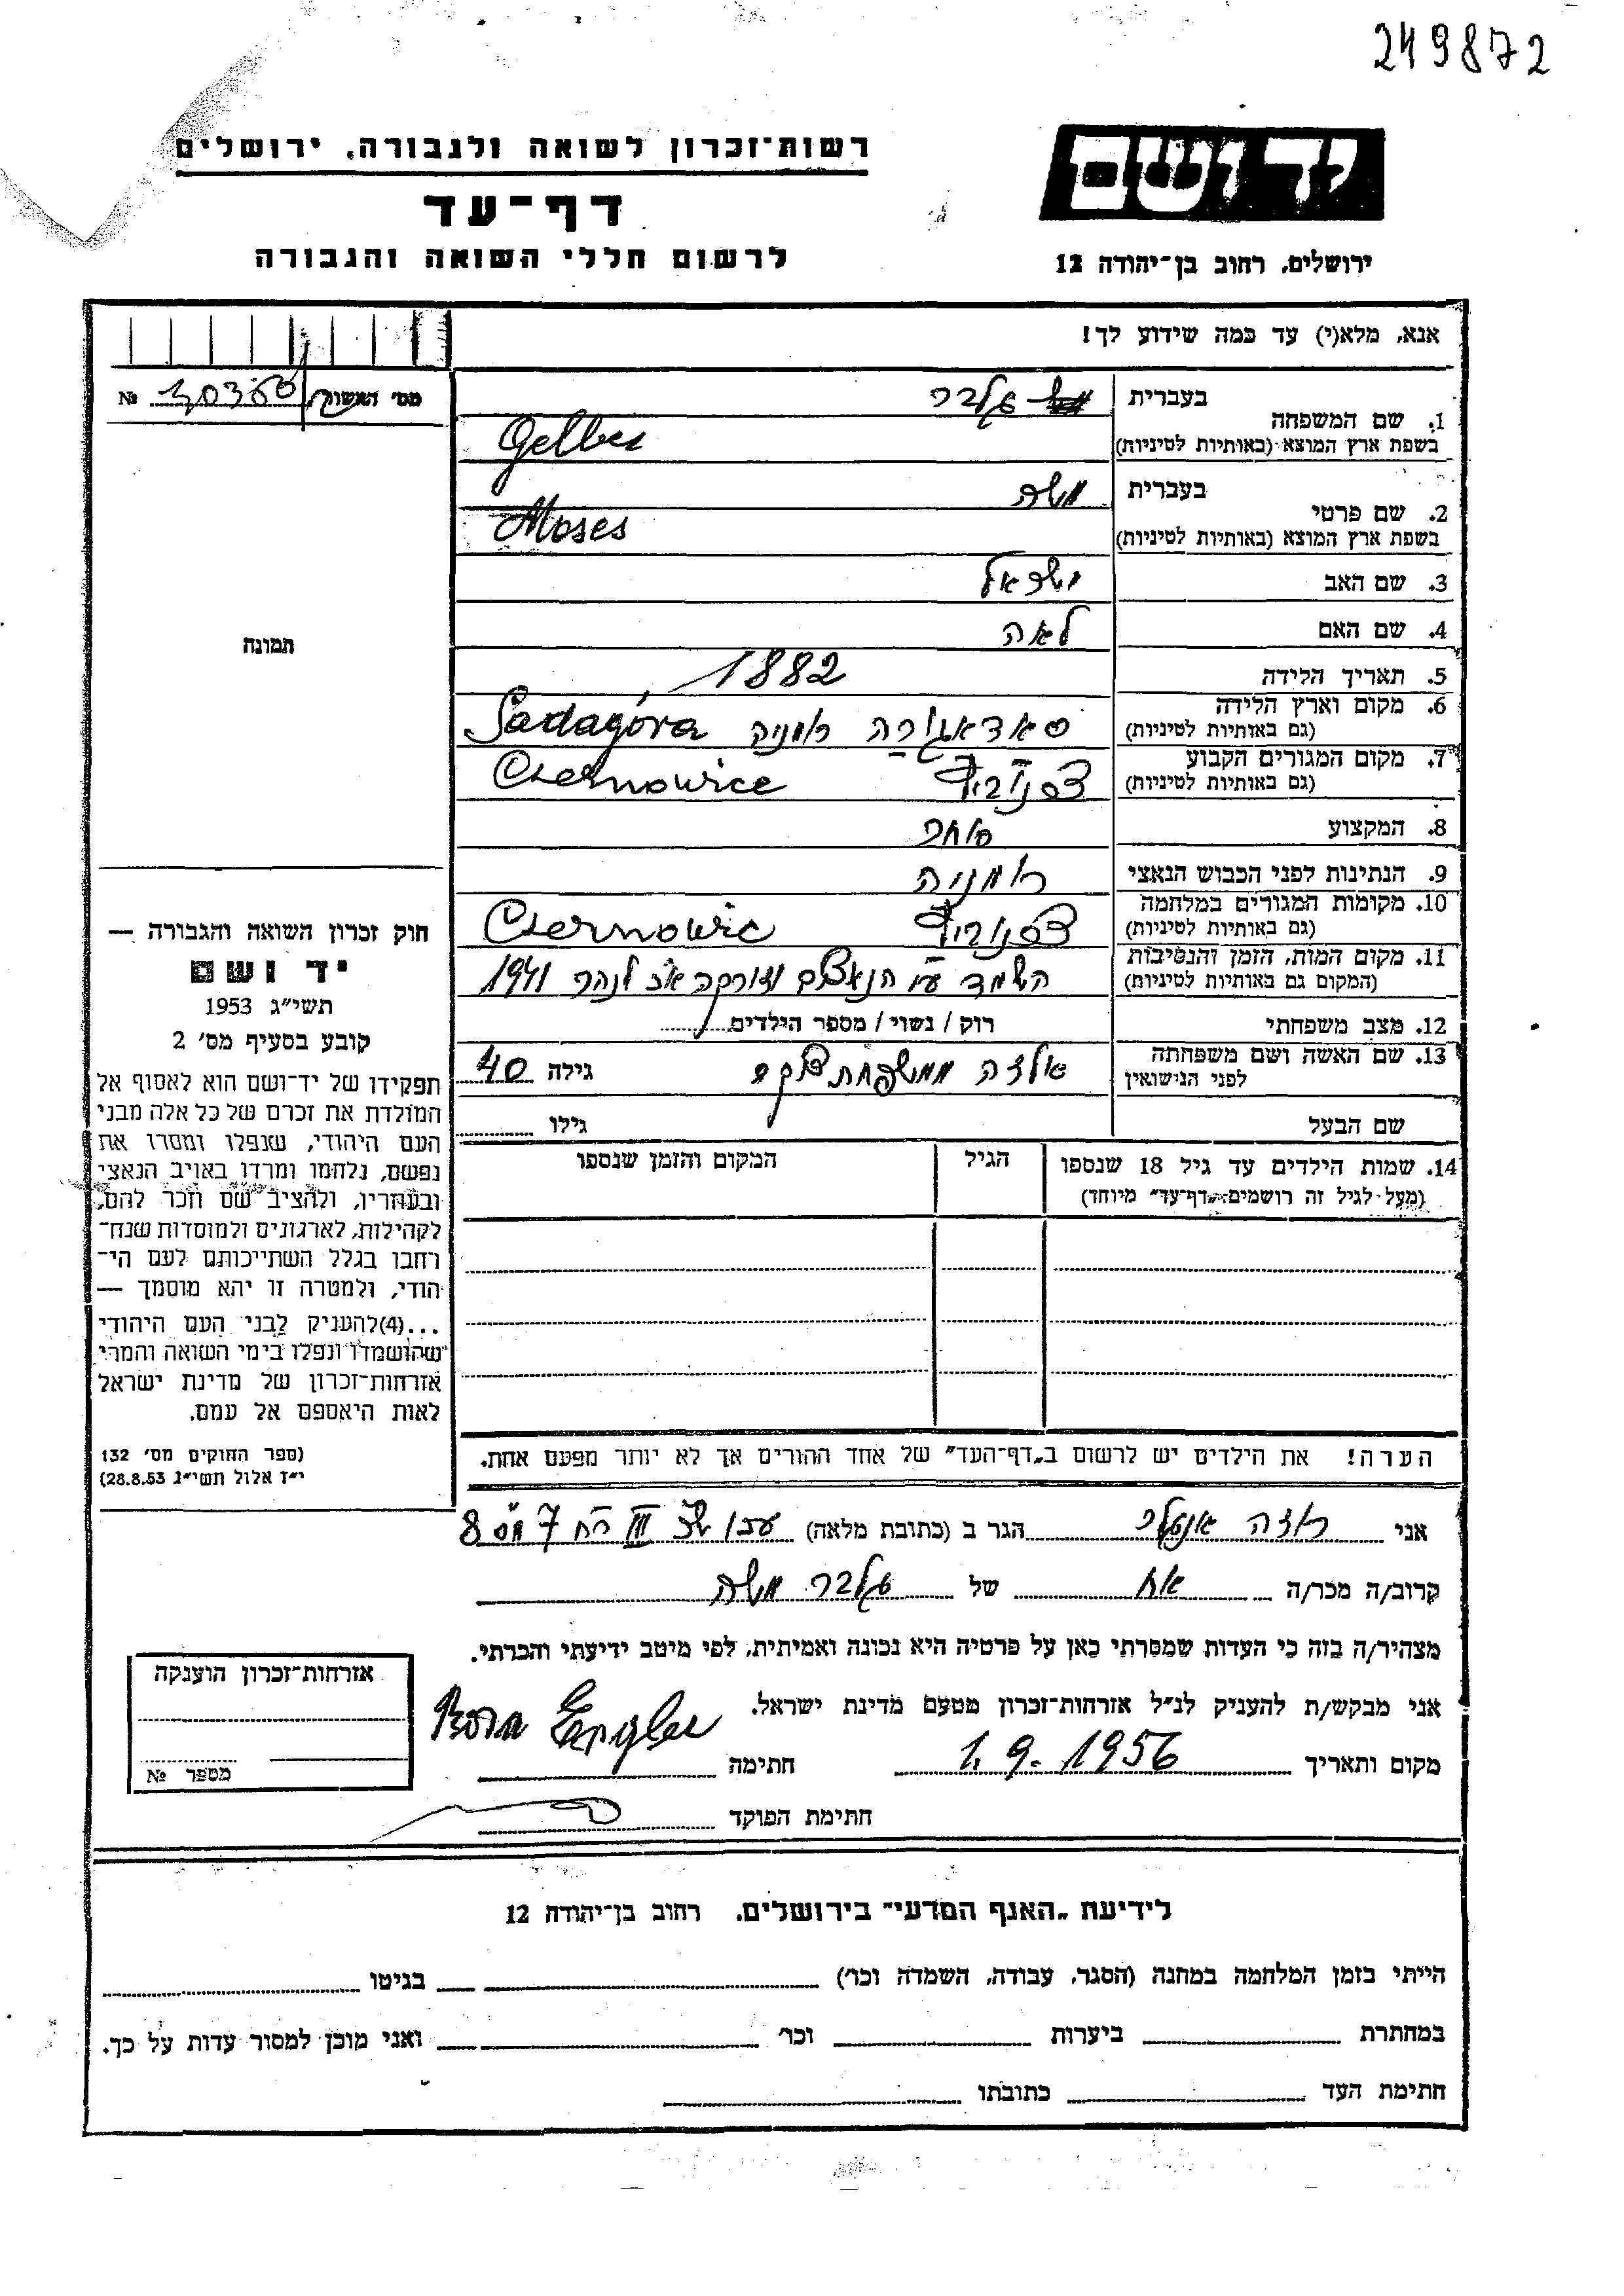 249872
רשות־זכרון לשואה ולגבורה, ירושלים
יד ושם
דף־עד
לרשום חללי השואה והגבורה
ירושלים, רחוב בן־יהודה 12
אנא, מלא(י) עד כמה שידוע לך!
מס' האשור № 
1. שם המשפחה
בעברית גלבר
בשפת ארץ המוצא (באותיות לטיניות) Gelber
2. שם פרטי
בעברית משה
בשפת ארץ המוצא (באותיות לטיניות) Moses
3. שם האב ישראל
4. שם האם לאה
5. תאריך הלידה 1882
6. מקום וארץ הלידה
(גם באותיות לטיניות) סאדאגורה רומניה Sadagóra
7. מקום המגורים הקבוע
(גם באותיות לטיניות) Czernowice
8. המקצוע סוחר
9. הנתינות לפני הכבוש הנאצי רומניה
10. מקומות המגורים במלחמה
(גם באותיות לטיניות) Czernowic
11. מקום המות, הזמן והנסיבות
(המקום גם באותיות לטיניות) הושמד ע״י הנאצים לנהר 1941
12. מצב משפחתי רוק / נשוי / מספר הילדים
13. שם האשה ושם משפחתה
לפני הנישואין ממשפחת גילה 40
שם הבעל גילו
14. שמות הילדים עד גיל 18 שנספו הגיל המקום והזמן שנספו
(מעל לגיל זה רושמים „דף־עד" מיוחד)
הערה! את הילדים יש לרשום ב„דף־העד" של אחד ההורים אך לא יותר מפעם אחת.
תמונה
חוק זכרון השואה והגבורה —
יד ושם
תשי"ג 1953
קובע בסעיף מס' 2
תפקידו של יד־ושם הוא לאסוף אל
המולדת את זכרם של כל אלה מבני
העם היהודי, שנפלו ומסרו את
נפשם, נלחמו ומרדו באויב הנאצי
ובעוזריו, ולהציב שם וזכר להם,
לקהילות, לארגונים ולמוסדות שנח־
רחבו בגלל השתייכותם לעם הי־
הודי, ולמטרה זו יהא מוסמך —
...(4) להעניק לבני העם היהודי
שהושמדו ונפלו בימי השואה והמרי
אזרחות־זכרון של מדינת ישראל
לאות היאספם אל עמם.
(ספר החוקים מס' 132
י"ז אלול תשי"ג 28.8.53)
אני רוזה אנגלר הגר ב (כתובת מלאה) III 7 8
קרוב/ה מכר/ה אח של גלבר משה
מצהיר/ה בזה כי העדות שמסרתי כאן על פרטיה היא נכונה ואמיתית, לפי מיטב ידיעתי והכרתי.
אני מבקש/ת להעניק לנ"ל אזרחות־זכרון מטעם מדינת ישראל.
מקום ותאריך 1.9.1956 חתימה Engler
חתימת הפוקד
אזרחות־זכרון הוענקה
מספר №
לידיעת „האגף המדעי" בירושלים, רחוב בן־יהודה 12
הייתי בזמן המלחמה במחנה (הסגר, עבודה, השמדה וכו') בגיטו
במחתרת ביערות וכו' ואני מוכן למסור עדות על כך.
חתימת העד כתובתו